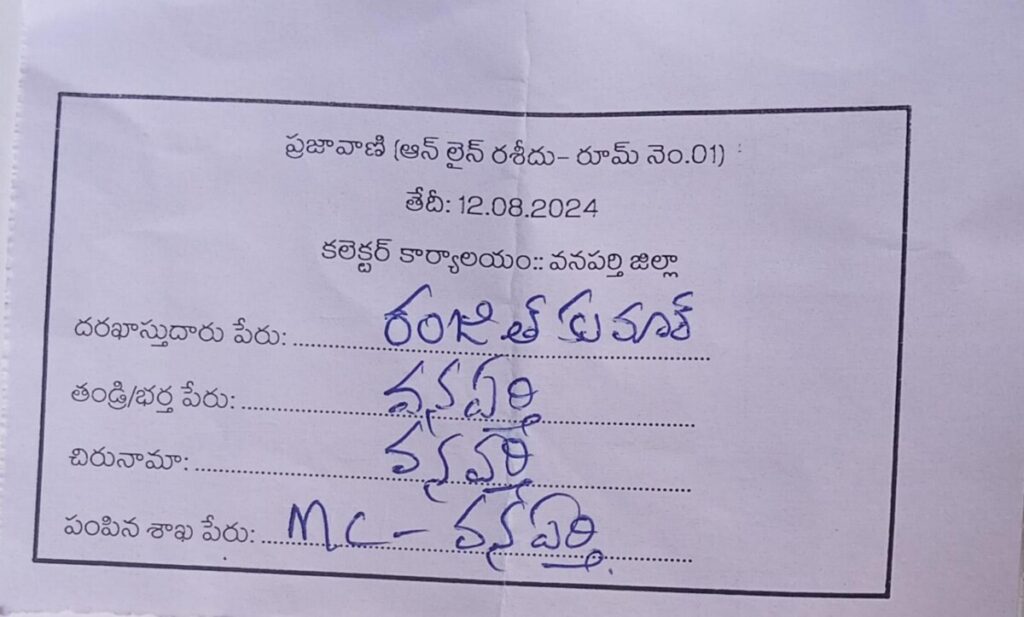 ప్రజావాణి (ఆన్ లైన్ రశీదు- రూమ్ నెం.01)
తేదీ: 12.08.2024
కలెక్టర్ కార్యాలయం:: వనపర్తి జిల్లా
దరఖాస్తుదారు పేరు: రంజిత్ కుమార్
తండ్రి/భర్త పేరు: వనపర్తి
చిరునామా: వనపర్తి
పంపిన శాఖ పేరు: MC - వనపర్తి.